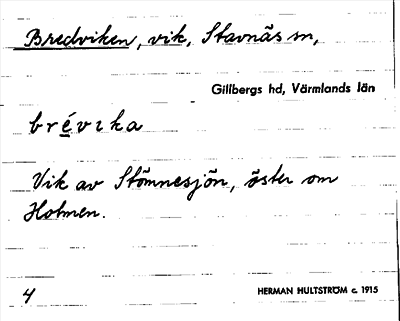 Bredviken, vik, Stavnäs sn,
Gillbergs hd, Värmlands län
brévika
Vik av Stömnesjön, öster om
Holmen.
4 HERMAN HULTSTRÖM c. 1915